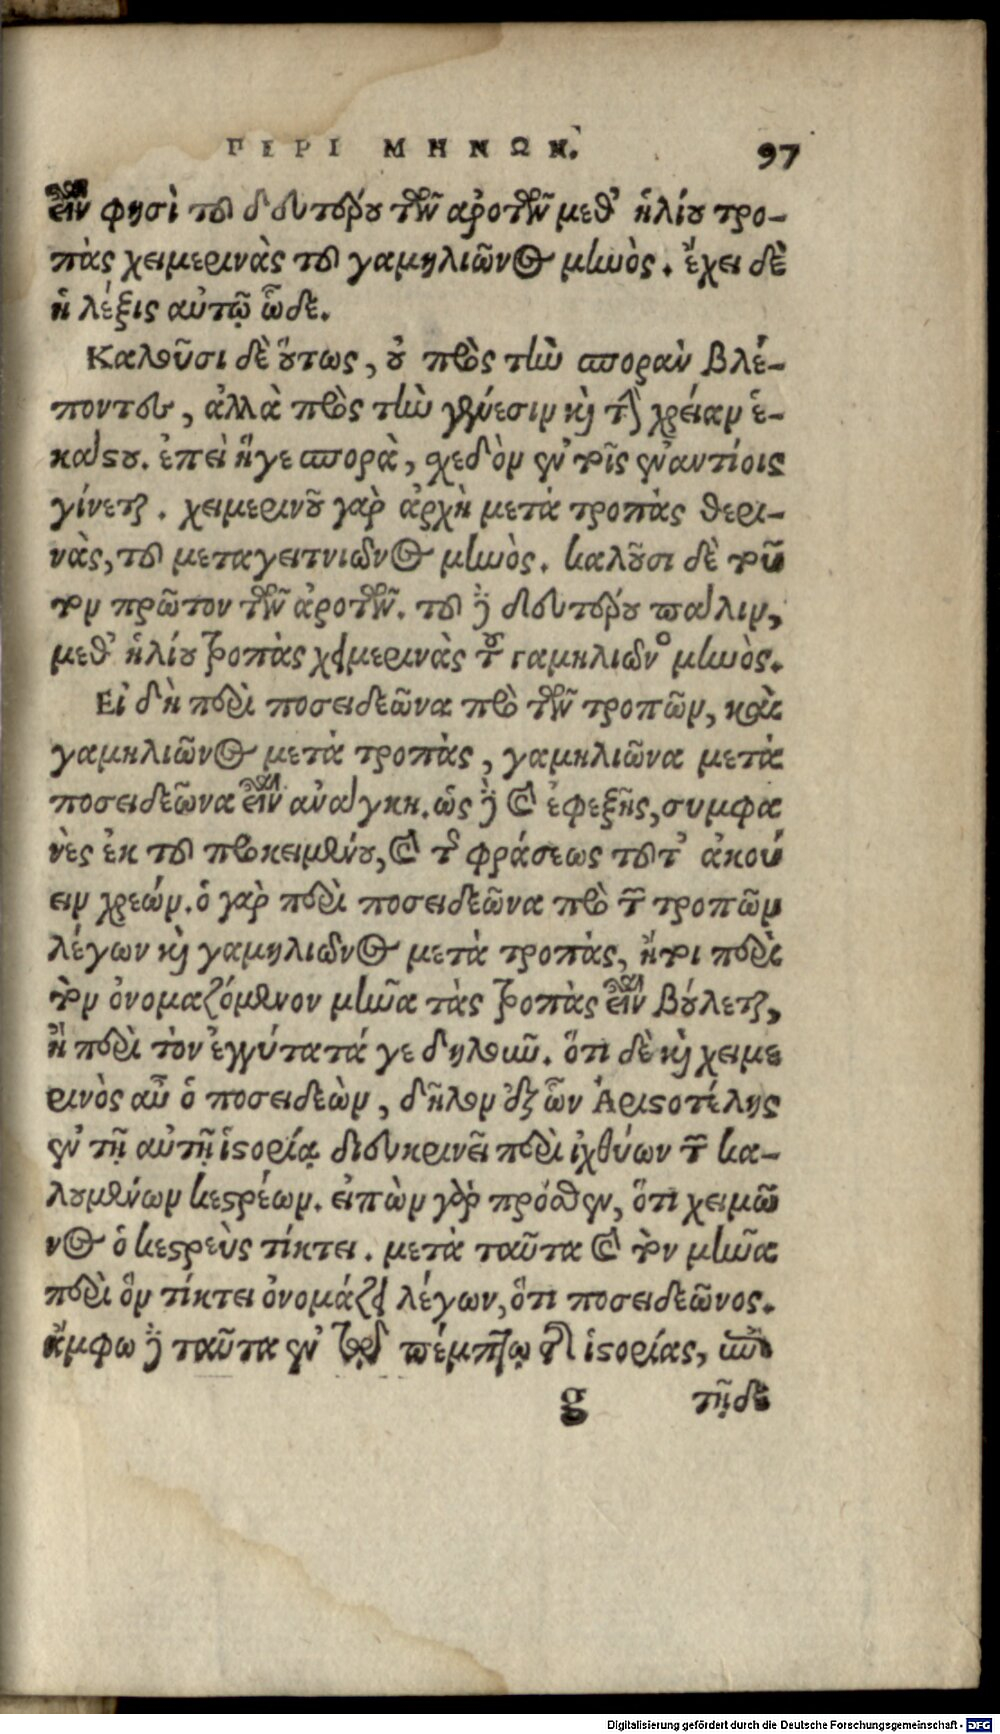 ΠΕΡΙ ΜΗΝΩΝ. 97
εἶναι φησὶ τοῦ δευτέρου τῶν ἀρότων μεθ' ἡλίου τρο-
πὰς χειμερινὰς τοῦ γαμηλιῶνος μηνός. ἔχει δὲ
ἡ λέξις αὐτῷ ὧδε.
Καλοῦσι δὲ οὕτως, οὐ πρὸς τὴν σποραν βλέ-
ποντες, ἀλλὰ πρὸς τὴν γένεσιν καὶ τὴν χρείαν ἑ-
κάστου. ἐπεὶ ἥγε σπορὰ, σχεδὸν ἐν τοῖς ἐναντίοις
γίνεται. χειμερινοῦ γὰρ ἀρχὴ μετὰ τροπὰς θερι-
νὰς, τοῦ μεταγειτνιῶνος μηνός. καλοῦσι δὲ τοῦ
τον πρῶτον τῶν ἀρότων. τοῦ δὲ δευτέρου πάλιν,
μεθ' ἡλίου τροπὰς χειμερινὰς τοῦ γαμηλιῶνος μηνός.
Εἰ δὴ περὶ ποσειδεῶνα πρὸ τῶν τροπῶν, καὶ
γαμηλιῶνος μετὰ τροπὰς, γαμηλιῶνα μετὰ
ποσειδεῶνα εἶναι ἀνάγκη. ὡς δὲ καὶ ἐφεξῆς, συμφα
νὲς ἐκ τοῦ προκειμένου, καὶ τῆς φράσεως τοῦτ' ἀκού
ειν χρεών. ὁ γὰρ περὶ ποσειδεῶνα πρὸ τῶν τροπῶν
λέγων καὶ γαμηλιῶνος μετὰ τροπὰς, ἤτοι περὶ
τὸν ὀνομαζόμενον μῆνα τὰς τροπὰς εἶναι βούλεται,
ἢ περὶ τὸν ἐγγύτατά γε δηλοῦν. ὅτι δὲ καὶ χειμε
ρινὸς αὖ ὁ ποσειδεὼν, δῆλον ἐξ ὧν Ἀριστοτέλης
ἐν τῇ αὐτῇ ἱστορίᾳ διευκρινεῖ περὶ ἰχθύων τῶν κα-
λουμένων κεστρέων. εἰπὼν γὰρ πρόσθεν, ὅτι χειμῶ
νος ὁ κεστρεὺς τίκτει. μετὰ ταῦτα καὶ τὸν μῆνα
περὶ ὃν τίκτει ὀνομάζει λέγων, ὅτι ποσειδεῶνος.
ἄμφω δὲ ταῦτα ἐν τῷ πέμπτῳ τῆς ἱστορίας,
g τῇδε